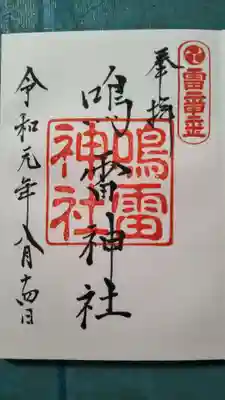 雷電宮
奉拝
鳴雷神社
鳴雷神社
令和元年八月十四日